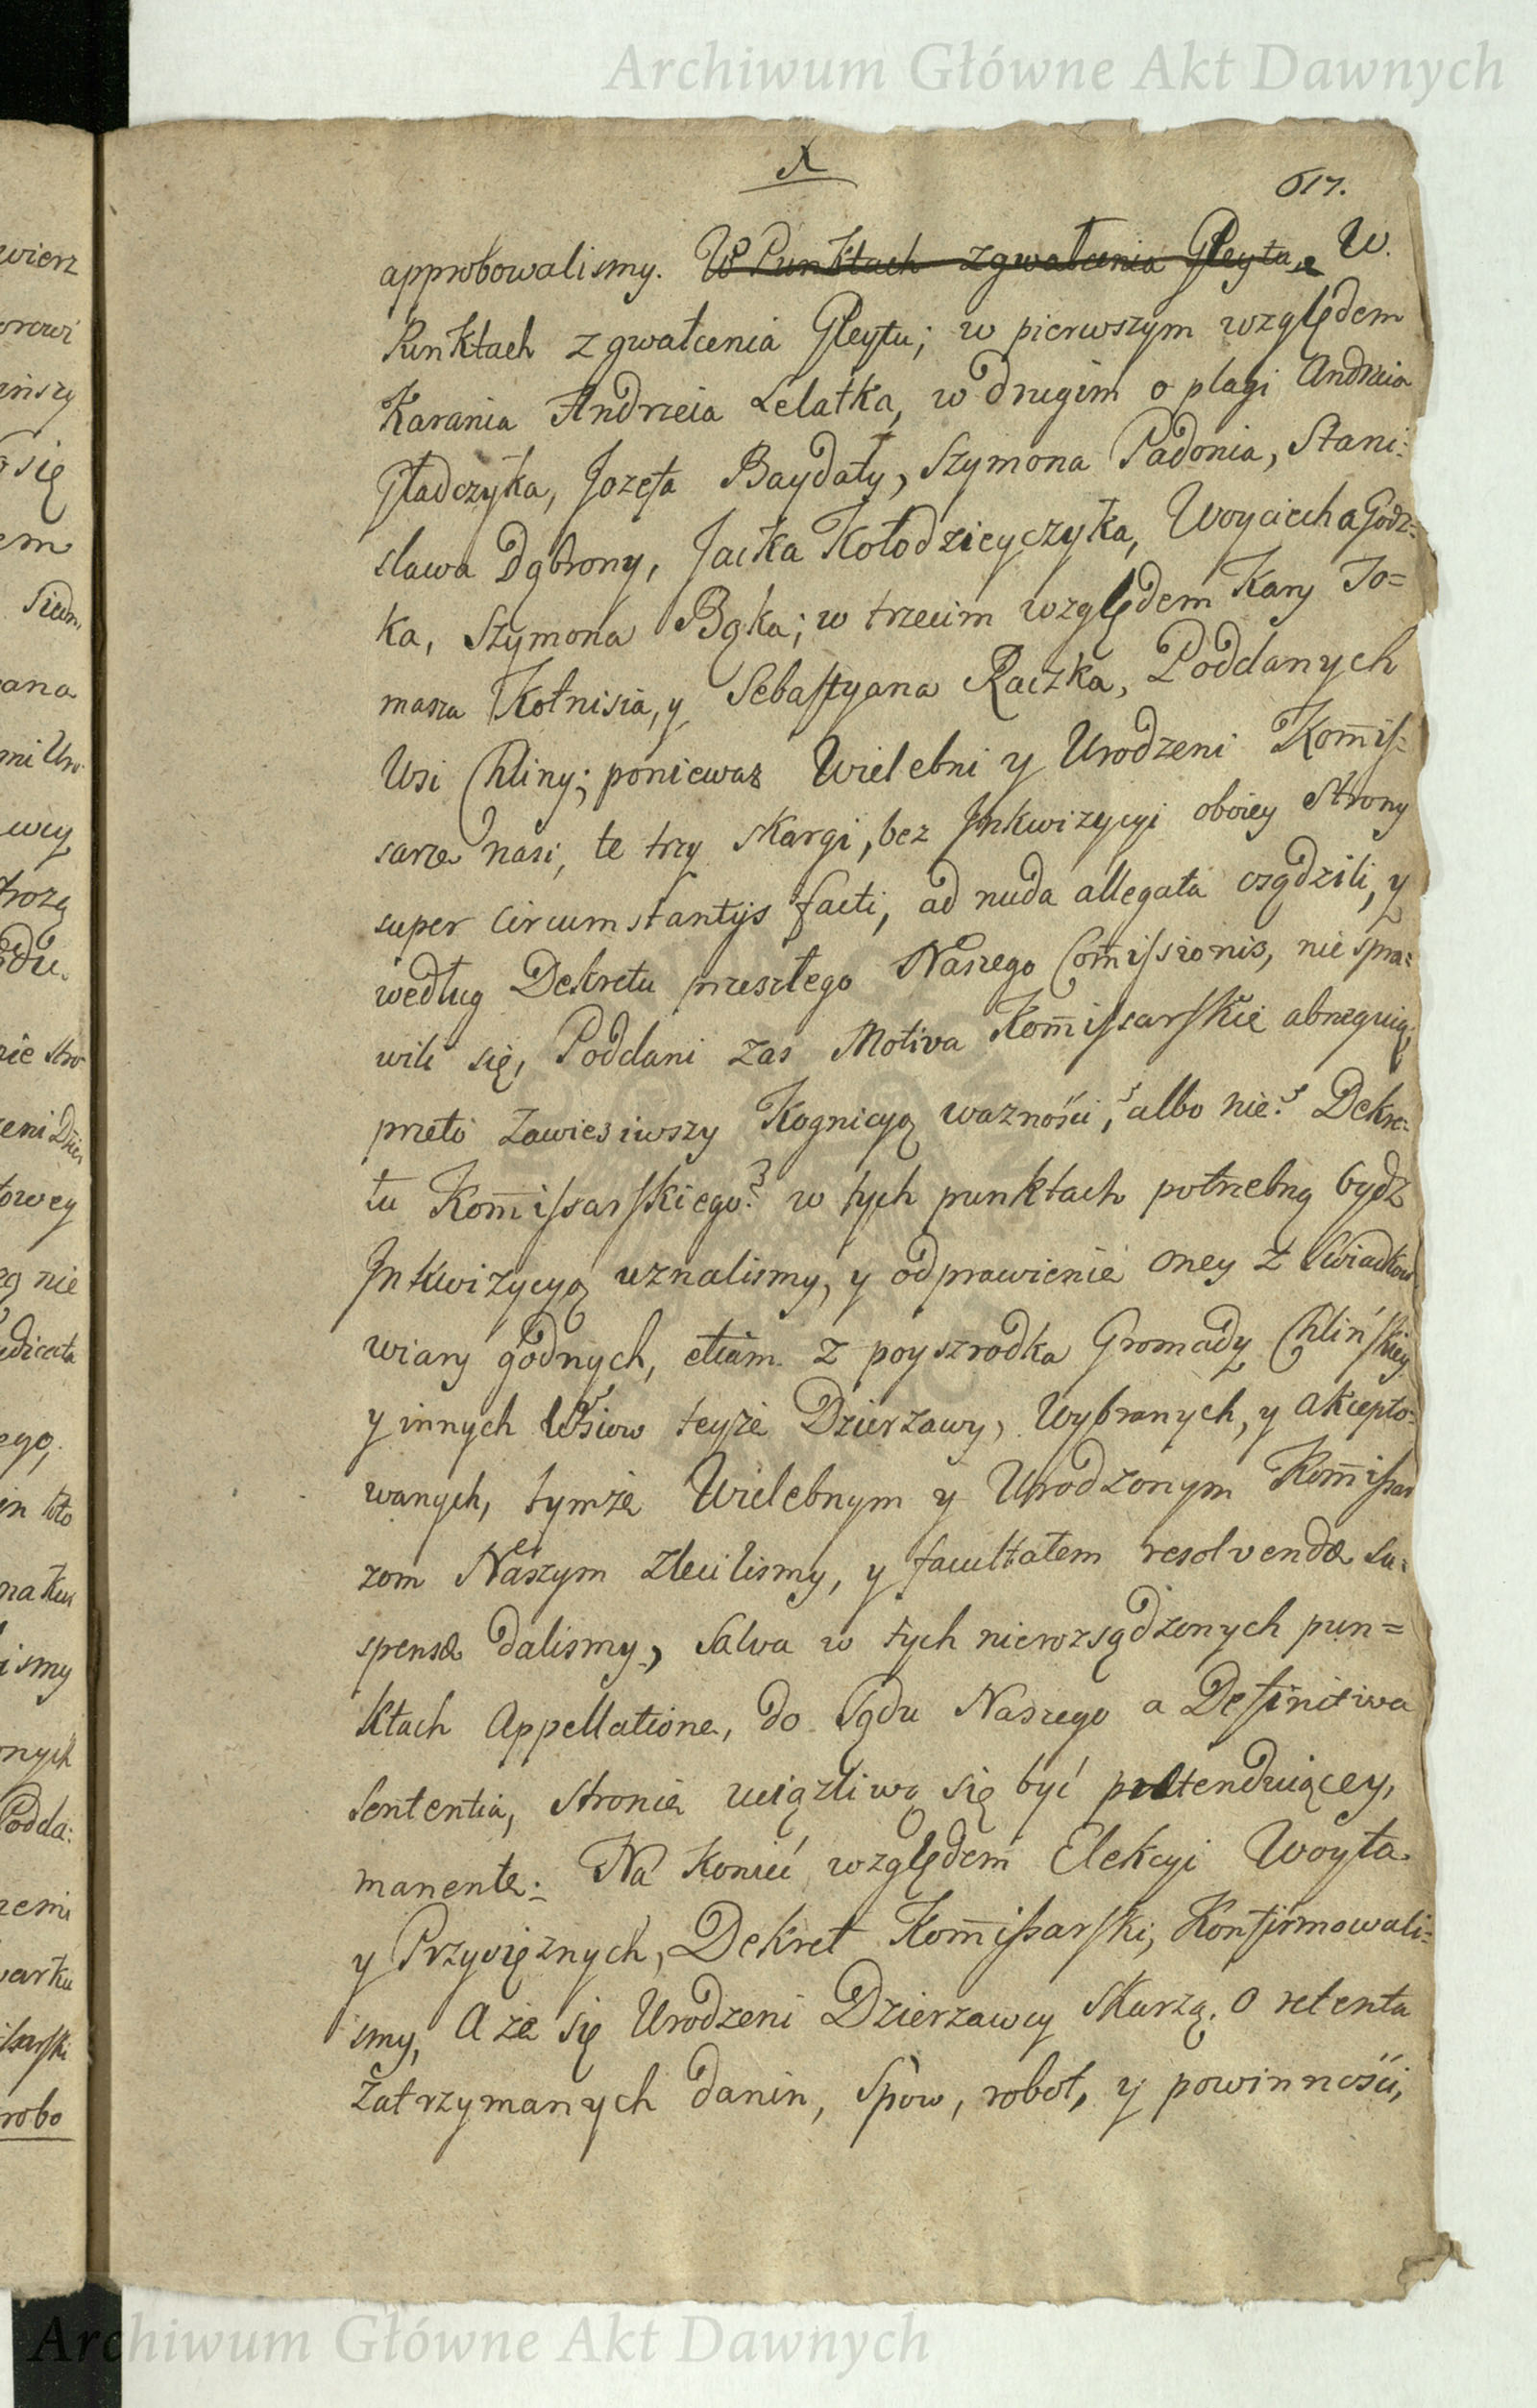 Archiwum Główne Akt Dawnych
X
617.
approbowalismy. W Punktach zgwałcenia Gleytu, W.
Punktach zgwałcenia Gleytu; w pierwszym względem
Karania Andrzeia Lelatka, w drugim o plagi Andrzeia
Gładczyka, Jozefa Baydały, Szymona Padonia, Stani:
sława Dąbrony, Jacka Kołodzieyczyka, Woyciecha Godz=
ka, Szymona Bąka; w trzecim względem Kary To=
masza Kołnisia, y Sebastyana Raczka, Poddanych
Wsi Chliny; poniewaz Wielebni y Urodzeni Kom̄is:
sarze nasi, te trzy skargi, bez Inkwizycyi oboiey Strony
super Circumstantijs facti, ad nuda allegata osądzili, y
według Dekretu przeszłego Naszego Com̄issionis, nie spra:
wili się, Poddani zas Motiva Kom̄issarskie abneguią,
przeto zawiesiwszy Kognicyą waznosci, albo nie? Dekre:
tu Kom̄issarskiego? w tych punktach potrzebną bydz
Inkwizycyą uznalismy, y odprawienie oney z Swiadkow
wiary godnych, etiam z poyszrodka Gromady Chlińskiey
y innych Wsiow teyże Dzierzawy, Wybranych, y akcepto:
wanych, tymże Wielebnym y Urodzonym Kom̄issar
zom Naszym zlecilismy, y facultatem resolvendæ su:
spensæ dalismy, Salva w tych nierozsądzonych pun=
ktach Appellatione, do Sądu Naszego a Definitiva
Sententia, stronie uciązliwą się być pretenduiącey,
manente. Na koniec względem Elekcyi Woyta
y Przysięznych, Dekret Kom̄issarski, Konfirmowali:
smy, A że się Urodzeni Dzierzawcy skarzą, o retenta
Zatrzymanych danin, Spow, robot, y powinności,
Archiwum Główne Akt Dawnych